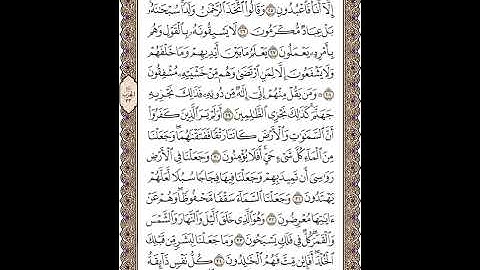 إِلَّا أَنَا۠ فَٱعْبُدُونِ ٢٥ وَقَالُوا۟ ٱتَّخَذَ ٱلرَّحْمَٰنُ وَلَدًا سُبْحَٰنَهُۥ
بَلْ عِبَادٌ مُّكْرَمُونَ ٢٦ لَا يَسْبِقُونَهُۥ بِٱلْقَوْلِ وَهُم
بِأَمْرِهِۦ يَعْمَلُونَ ٢٧ يَعْلَمُ مَا بَيْنَ أَيْدِيهِمْ وَمَا خَلْفَهُمْ
وَلَا يَشْفَعُونَ إِلَّا لِمَنِ ٱرْتَضَىٰ وَهُم مِّنْ خَشْيَتِهِۦ مُشْفِقُونَ
٢٨ وَمَن يَقُلْ مِنْهُمْ إِنِّىٓ إِلَٰهٌ مِّن دُونِهِۦ فَذَٰلِكَ نَجْزِيهِ
جَهَنَّمَ كَذَٰلِكَ نَجْزِى ٱلظَّٰلِمِينَ ٢٩ أَوَلَمْ يَرَ ٱلَّذِينَ كَفَرُوٓا۟
أَنَّ ٱلسَّمَٰوَٰتِ وَٱلْأَرْضَ كَانَتَا رَتْقًا فَفَتَقْنَٰهُمَا وَجَعَلْنَا
مِنَ ٱلْمَآءِ كُلَّ شَىْءٍ حَىٍّ أَفَلَا يُؤْمِنُونَ ٣٠ وَجَعَلْنَا فِى ٱلْأَرْضِ
رَوَٰسِىَ أَن تَمِيدَ بِهِمْ وَجَعَلْنَا فِيهَا فِجَاجًا سُبُلًا لَّعَلَّهُمْ
يَهْتَدُونَ ٣١ وَجَعَلْنَا ٱلسَّمَآءَ سَقْفًا مَّحْفُوظًا وَهُمْ عَنْ
ءَايَٰتِهَا مُعْرِضُونَ ٣٢ وَهُوَ ٱلَّذِى خَلَقَ ٱلَّيْلَ وَٱلنَّهَارَ وَٱلشَّمْسَ
وَٱلْقَمَرَ كُلٌّ فِى فَلَكٍ يَسْبَحُونَ ٣٣ وَمَا جَعَلْنَا لِبَشَرٍ مِّن قَبْلِكَ
ٱلْخُلْدَ أَفَإِي۟ن مِّتَّ فَهُمُ ٱلْخَٰلِدُونَ ٣٤ كُلُّ نَفْسٍ ذَآئِقَةُ